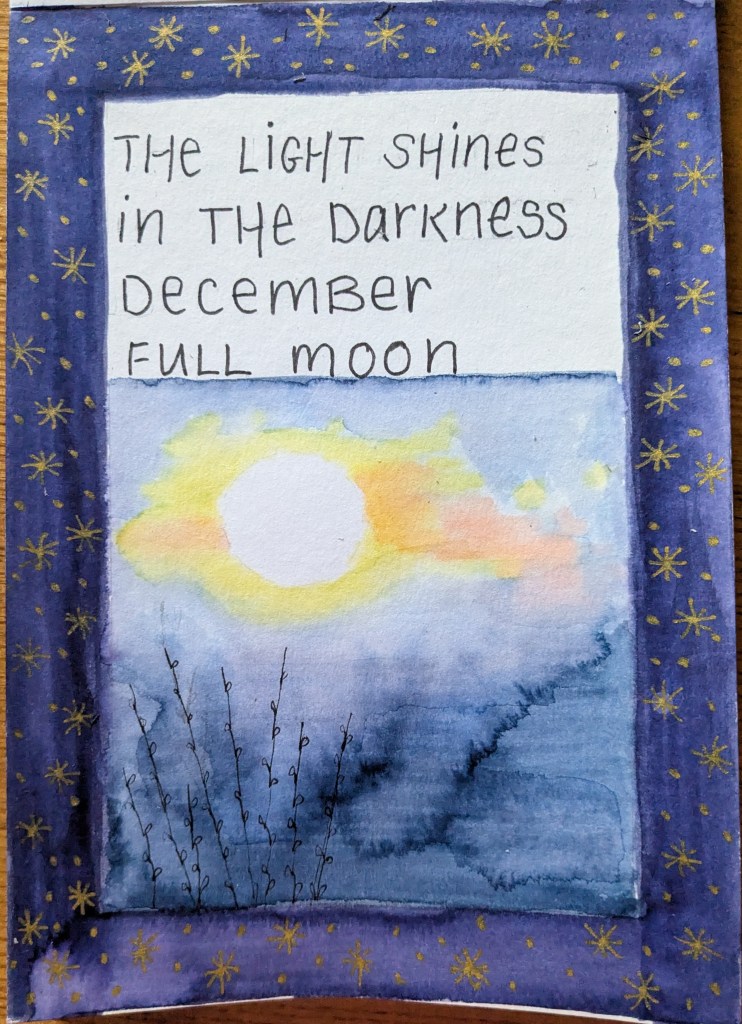 THE LIGHT SHINES
in THE DARKNESS
DECEMBER
FULL MOON